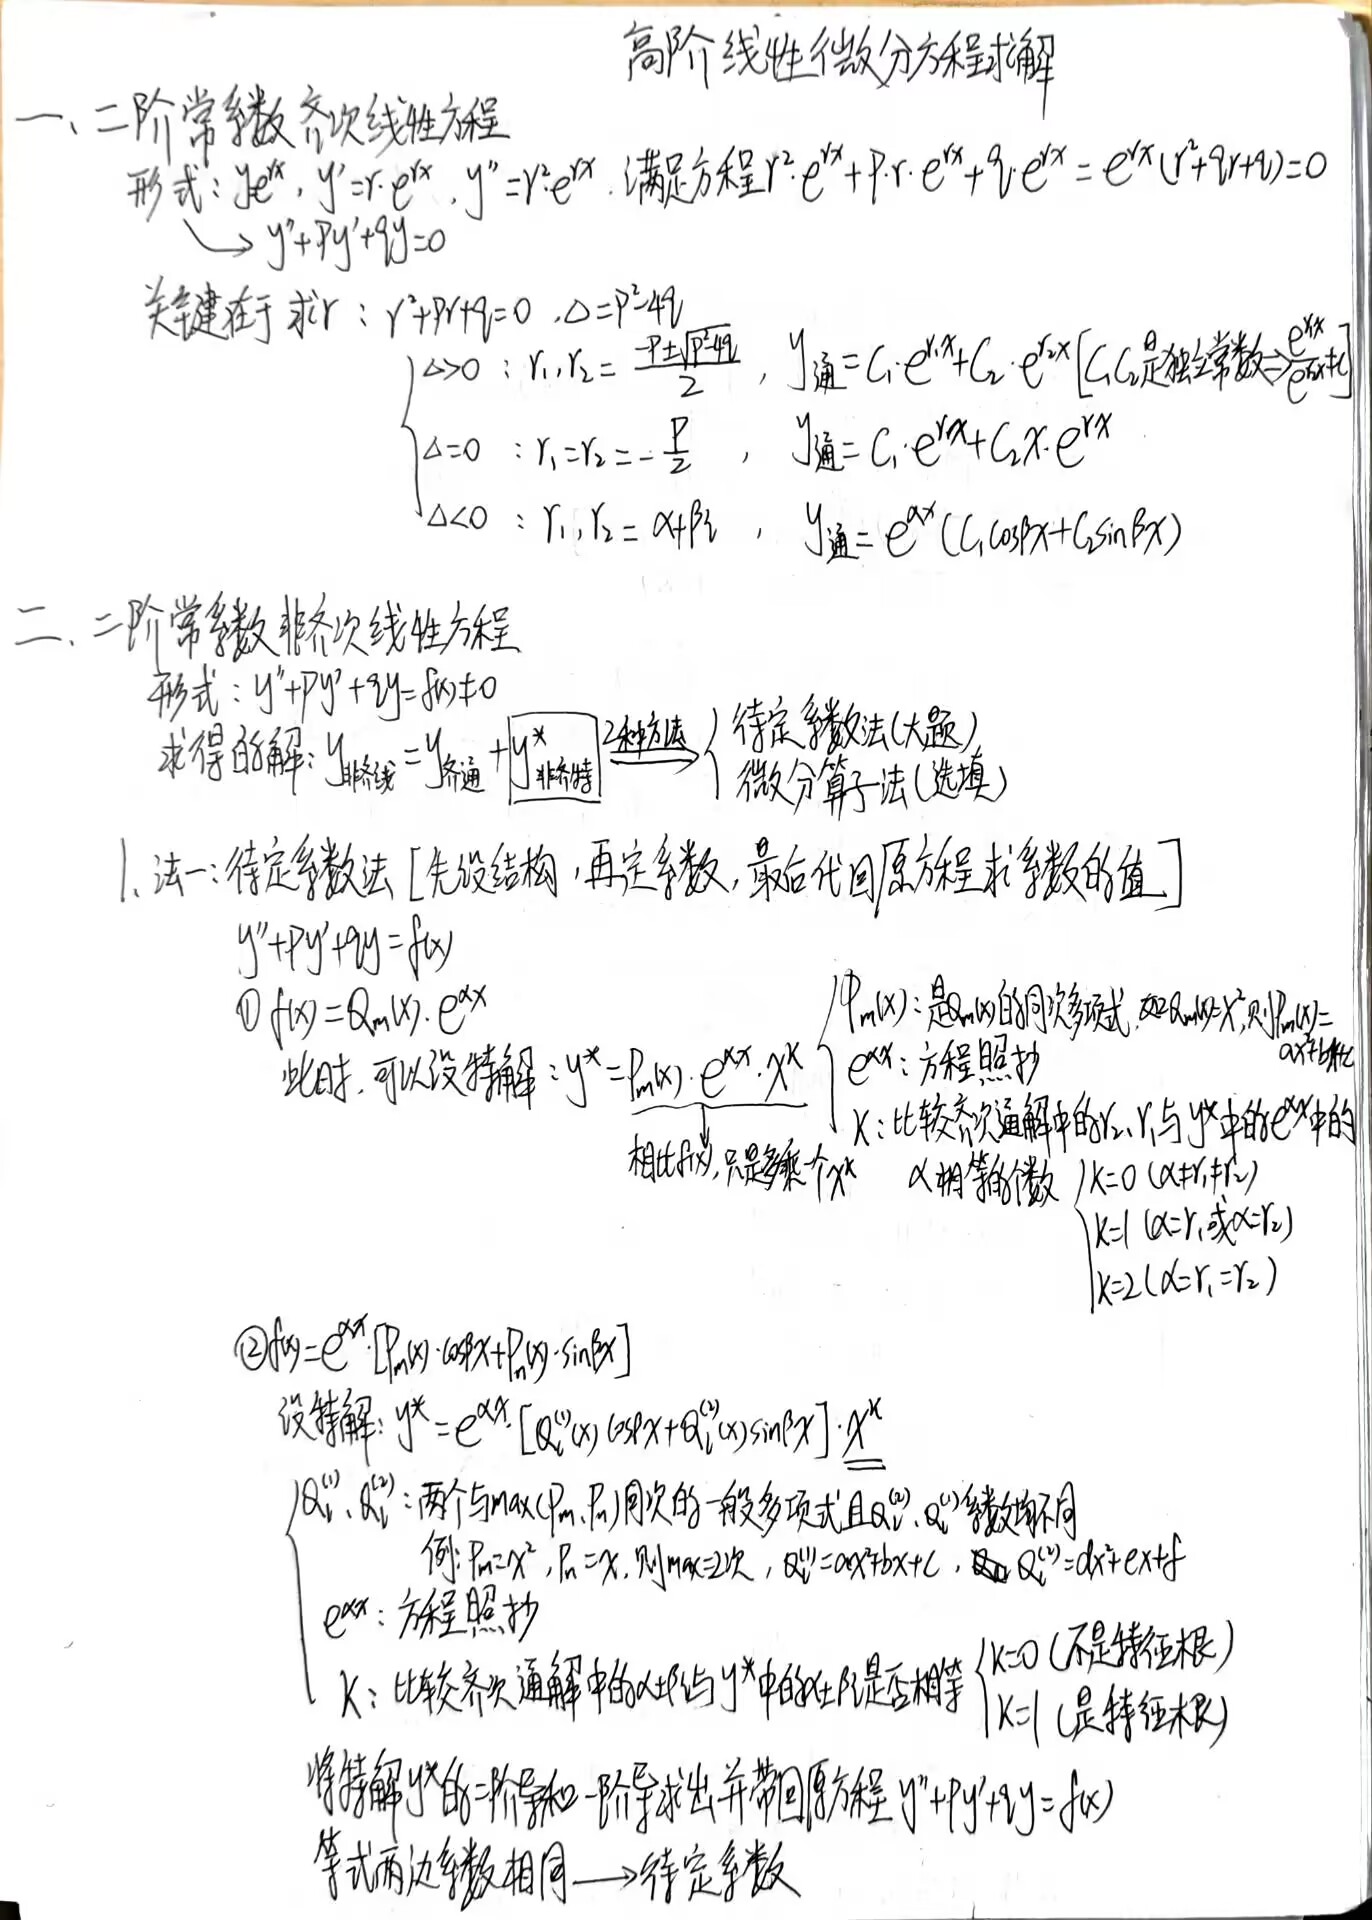 高阶线性微分方程求解
一、二阶常系数齐次线性方程
形式：y=e^{rx}，y'=r·e^{rx}，y''=r²·e^{rx}．满足方程r²·e^{rx}+p·r·e^{rx}+q·e^{rx}=e^{rx}(r²+qr+q)=0
↘ y''+Py'+qy=0
关键在于求r：r²+Pr+q=0，Δ=P²-4q
Δ>0：r₁,r₂=\frac{-P±\sqrt{P²-4q}}{2}，y通=C₁·e^{r₁x}+C₂·e^{r₂x}[C₁C₂是独立常数⇒\frac{e^{r₁x}}{e^{r₂x}}≠C]
Δ=0：r₁=r₂=-\frac{P}{2}，y通=C₁·e^{rx}+C₂x·e^{rx}
Δ<0：r₁,r₂=α+βi，y通=e^{αx}(C₁cosβx+C₂sinβx)
二、二阶常系数非齐次线性方程
形式：y''+Py'+qy=f(x)≠0
求得的解：y非齐线=y齐通+y*非齐特 2种方法→
待定系数法(大题)
微分算子法(选填)
1、法一：待定系数法[先设结构，再定系数，最后代回原方程求系数的值]
y''+Py'+qy=f(x)
① f(x)=Qm(x)·e^{αx}
此时，可以设特解：y*=Pm(x)·e^{αx}·x^k
相比f(x)，只是多乘一个x^k
Pm(x)：是Qm(x)的同次多项式，如Qm(x)=x²，则Pm(x)=
ax²+bx+c
e^{αx}：方程照抄
K：比较齐次通解中的r₂、r₁与y*中的e^{αx}中的
α相等的个数
k=0 (α≠r₁≠r₂)
k=1 (α=r₁或α=r₂)
k=2 (α=r₁=r₂)
② f(x)=e^{αx}·[Pm(x)·cosβx+Pn(x)·sinβx]
设特解：y*=e^{αx}·[Q_l^{(1)}(x)cosβx+Q_l^{(2)}(x)sinβx]·x^k
Q_l^{(1)}、Q_l^{(2)}：两个与max(Pm、Pn)同次的一般多项式且Q_l^{(2)}、Q_l^{(1)}系数均不同
例：Pm=x²，Pn=x，则max=2次，Q_l^{(1)}=ax²+bx+c，Q_l^{(2)}=dx²+ex+f
e^{αx}：方程照抄
K：比较齐次通解中的α±βi与y*中的α±βi是否相等
k=0 (不是特征根)
k=1 (是特征根)
将特解y*的二阶导和一阶导求出并带回原方程y''+Py'+qy=f(x)
等式两边系数相同→待定系数